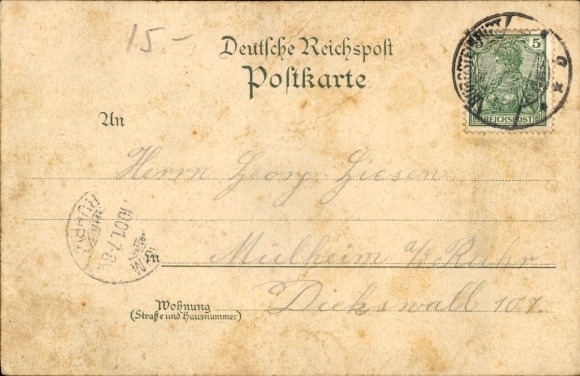 15-
Deutsche Reichspost
Postkarte
5
REICHSPOST
An
Herrn Georg Giesen
in Mülheim a/d Ruhr
Wohnung
(Straße und Hausnummer)
Dickswall 107.